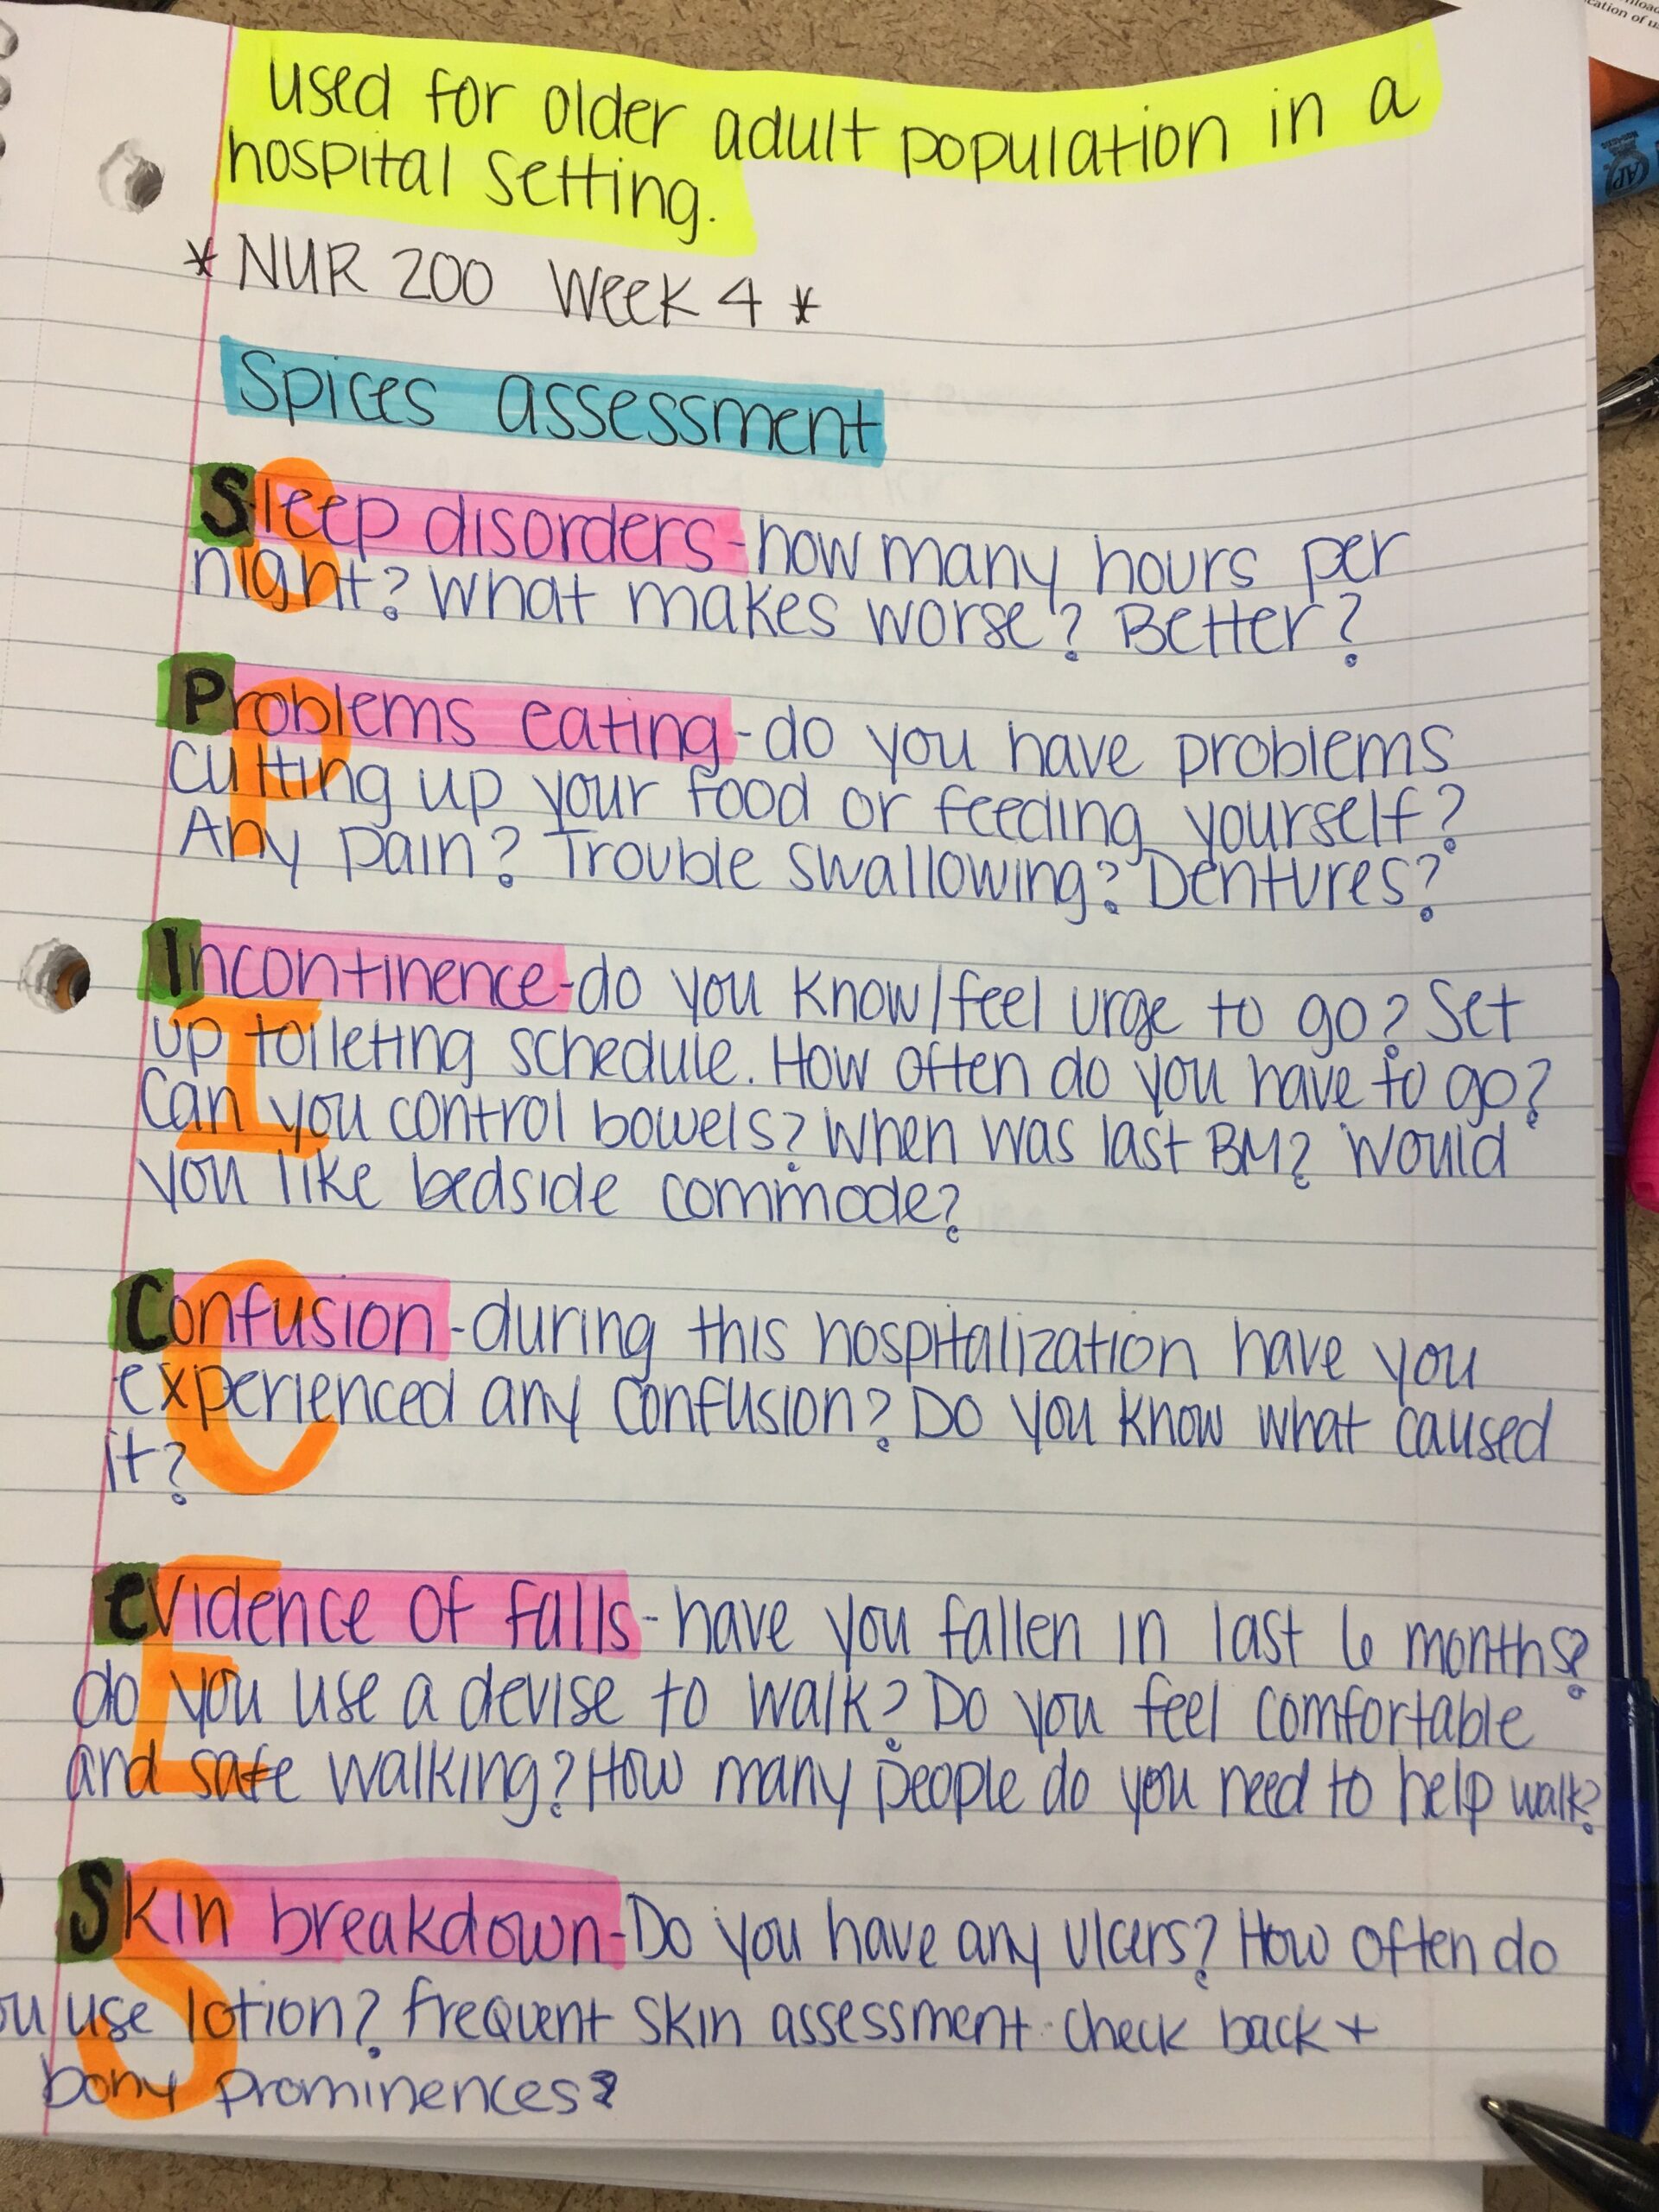 used for older adult population in a
hospital setting.
* NUR 200 Week 4 *
Spices assessment
Sleep disorders - how many hours per
night? What makes worse? Better?
Problems eating - do you have problems
cutting up your food or feeding yourself?
Any pain? Trouble swallowing? Dentures?
Incontinence - do you know/feel urge to go? Set
up toileting schedule. How often do you have to go?
Can you control bowels? When was last BM? Would
you like bedside commode?
Confusion - during this hospitalization have you
experienced any confusion? Do you know what caused
it?
evidence of falls - have you fallen in last 6 months?
do you use a devise to walk? Do you feel comfortable
and safe walking? How many people do you need to help walk?
Skin breakdown - Do you have any ulcers? How often do
ou use lotion? frequent skin assessment - check back +
bony prominences?
S
P
I
C
E
S
AP